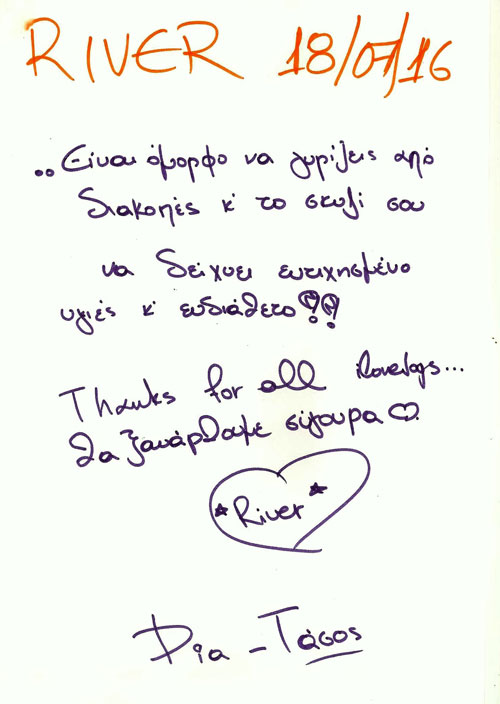 RIVER 18/07/16
.. Είναι όμορφο να γυρίζεις από
διακοπές κ' το σκυλί σου
να δείχνει ευτιχησμένο
υγιές κ' ευδιάθετο!!
Thanks for all ilovedogs...
θα ξαναάρθαμε σίγουρα
*River*
Ρία - Τάσος